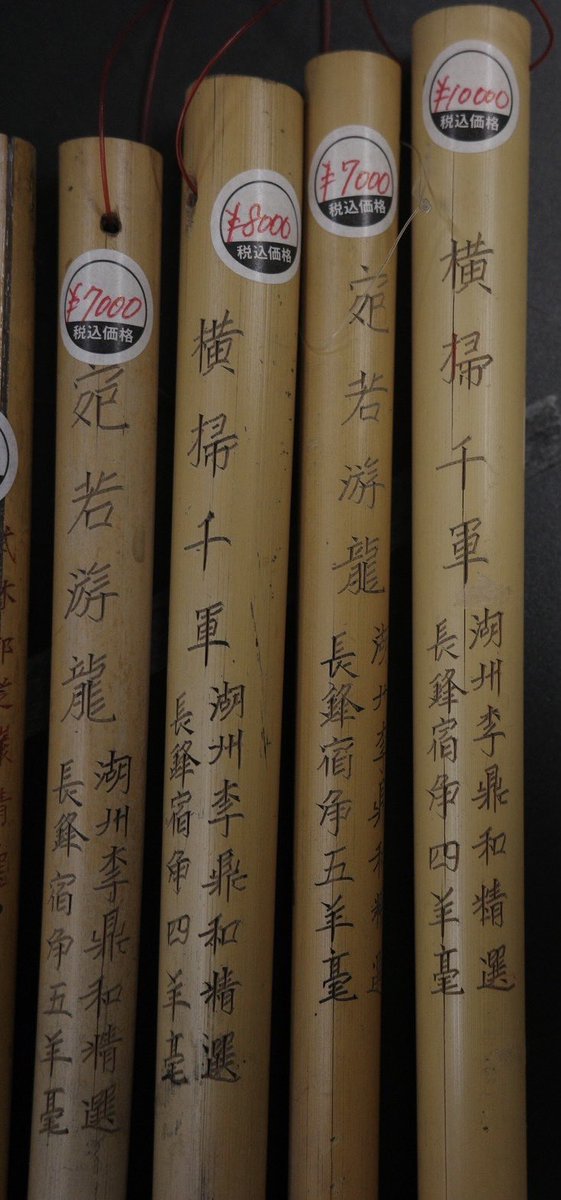 ¥7000
税込価格
宛若游龍
湖州李鼎和精選
長鋒宿净五羊毫
¥8000
税込価格
横掃千軍
湖州李鼎和精選
長鋒宿净四羊毫
¥7000
税込価格
宛若游龍
湖州李鼎和精選
長鋒宿净五羊毫
¥10000
税込価格
横掃千軍
湖州李鼎和精選
長鋒宿净四羊毫